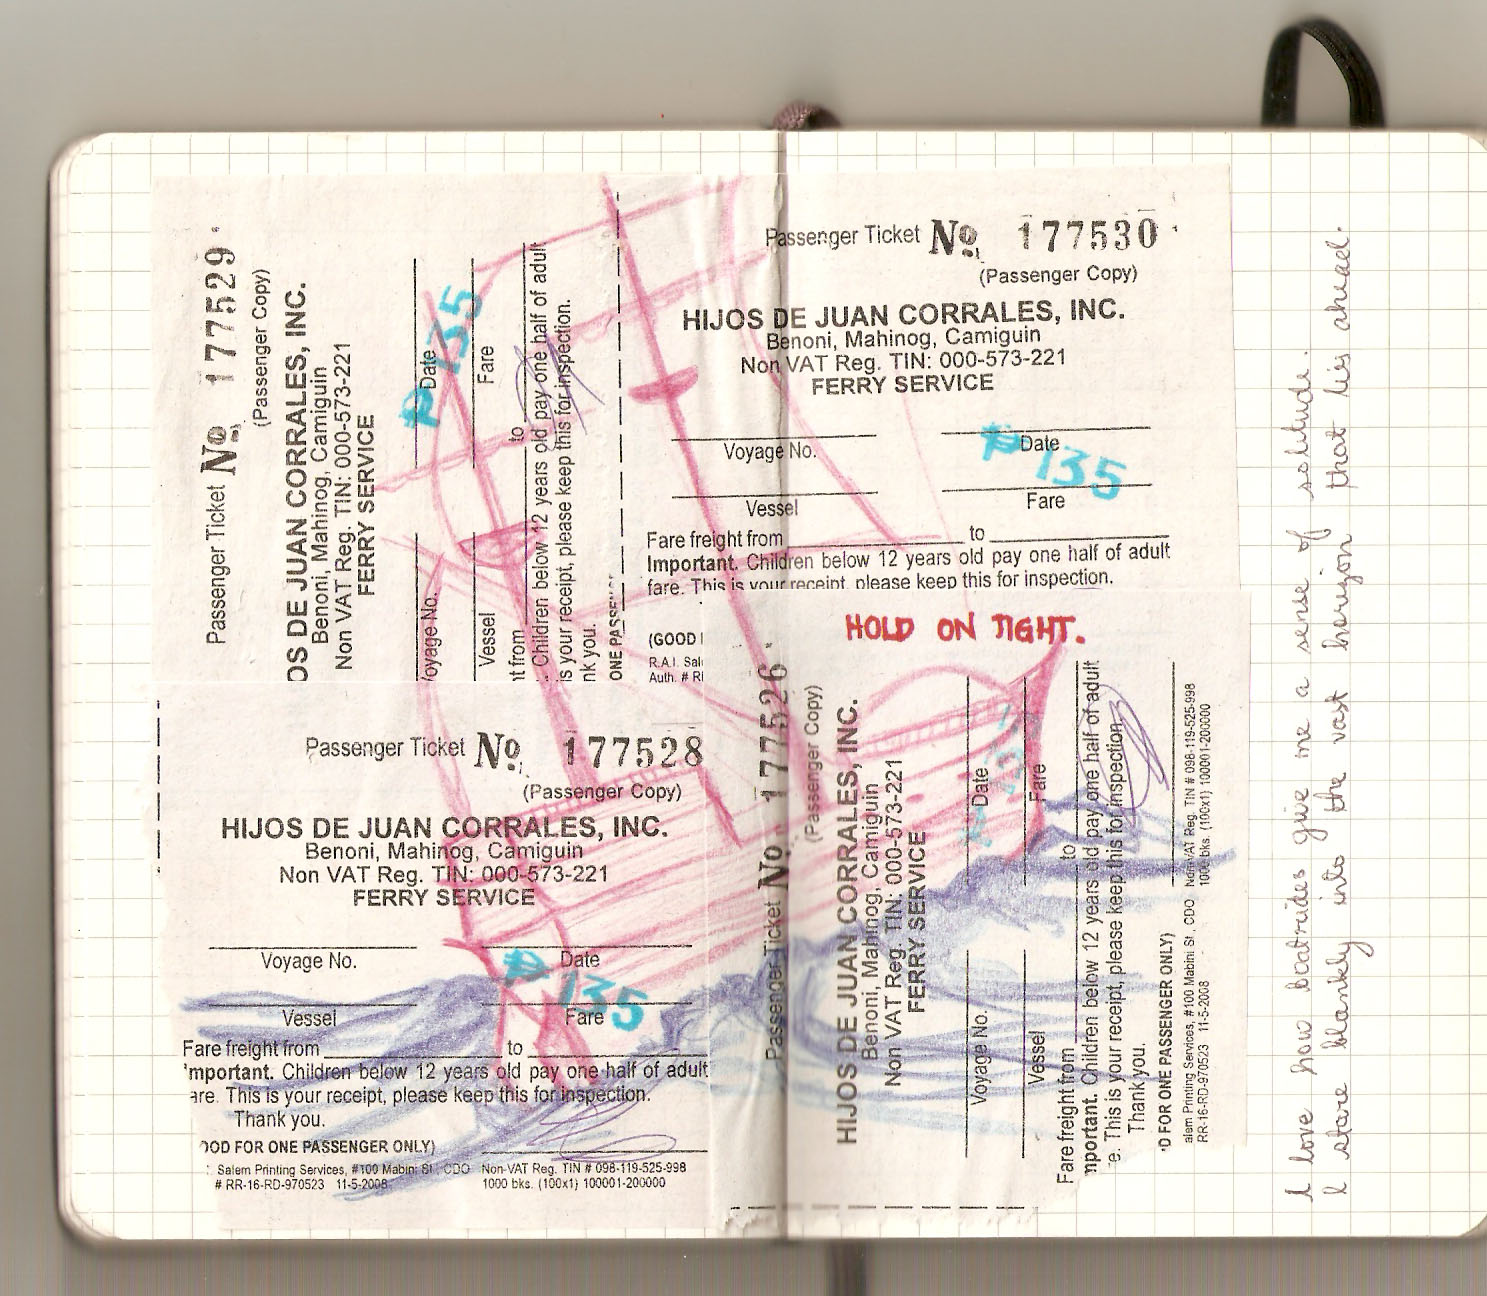 Passenger Ticket No. 177529
(Passenger Copy)
OS DE JUAN CORRALES, INC.
Benoni, Mahinog, Camiguin
Non VAT Reg. TIN: 000-573-221
FERRY SERVICE
oyage No. Date
₱135
Vessel Fare
nt from to
Children below 12 years old pay one half of adult
is your receipt, please keep this for inspection.
nk you.
ONE PASSEN
Passenger Ticket No. 177530
(Passenger Copy)
HIJOS DE JUAN CORRALES, INC.
Benoni, Mahinog, Camiguin
Non VAT Reg. TIN: 000-573-221
FERRY SERVICE
Voyage No. Date
₱135
Vessel Fare
Fare freight from to
Important. Children below 12 years old pay one half of adult
fare. This is your receipt, please keep this for inspection.
(GOOD
R.A.I. Sal
Auth. # R
Passenger Ticket No. 177528
(Passenger Copy)
HIJOS DE JUAN CORRALES, INC.
Benoni, Mahinog, Camiguin
Non VAT Reg. TIN: 000-573-221
FERRY SERVICE
Voyage No. Date
₱135
Vessel Fare
Fare freight from to
mportant. Children below 12 years old pay one half of adult
are. This is your receipt, please keep this for inspection.
Thank you.
OOD FOR ONE PASSENGER ONLY)
Salem Printing Services, #100 Mabini St., CDO Non-VAT Reg. TIN # 098-119-525-998
# RR-16-RD-970523 11-5-2008 1000 bks. (100x1) 100001-200000
HOLD ON TIGHT.
Passenger Ticket No. 177526
(Passenger Copy)
HIJOS DE JUAN CORRALES, INC.
Benoni, Mahinog, Camiguin
Non VAT Reg. TIN: 000-573-221
FERRY SERVICE
Voyage No. Date
₱135
Vessel Fare
Fare freight from to
mportant. Children below 12 years old pay one half of adult
e. This is your receipt, please keep this for inspection.
Thank you.
D FOR ONE PASSENGER ONLY)
alem Printing Services, #100 Mabini St., CDO Non-VAT Reg. TIN # 098-119-525-998
RR-16-RD-970523 11-5-2008 1000 bks. (100x1) 100001-200000
I love how boatrides give me a sense of solitude.
I stare blankly into the vast horizon that lies ahead.